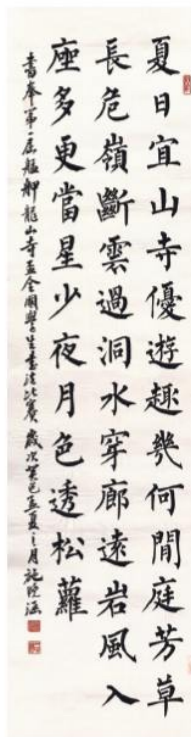 夏日宜山寺優遊趣幾何閒庭芳草
長危嶺斷雲過洞水穿廊遠岩風入
座多更當星少夜月色透松蘿
書奉第一屆艋舺龍山寺盃全國學生書法比賽 歲次癸巳孟夏之月施